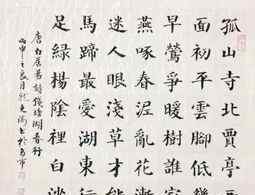 孤山寺北賈亭
面初平雲腳低
早鶯爭暖樹誰
燕啄春泥亂花
迷人眼淺草才
馬蹄最愛湖東
足綠楊陰裡白沙
唐白居易詩錢塘湖春行
丙申之良月